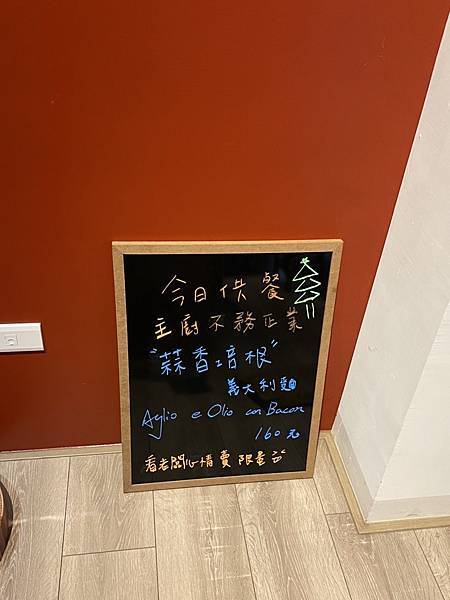 今日供餐
主廚不務正業
"蒜香培根"
義大利麵
Aglio e Olio con Bacon
160元
看老闆心情賣 限量